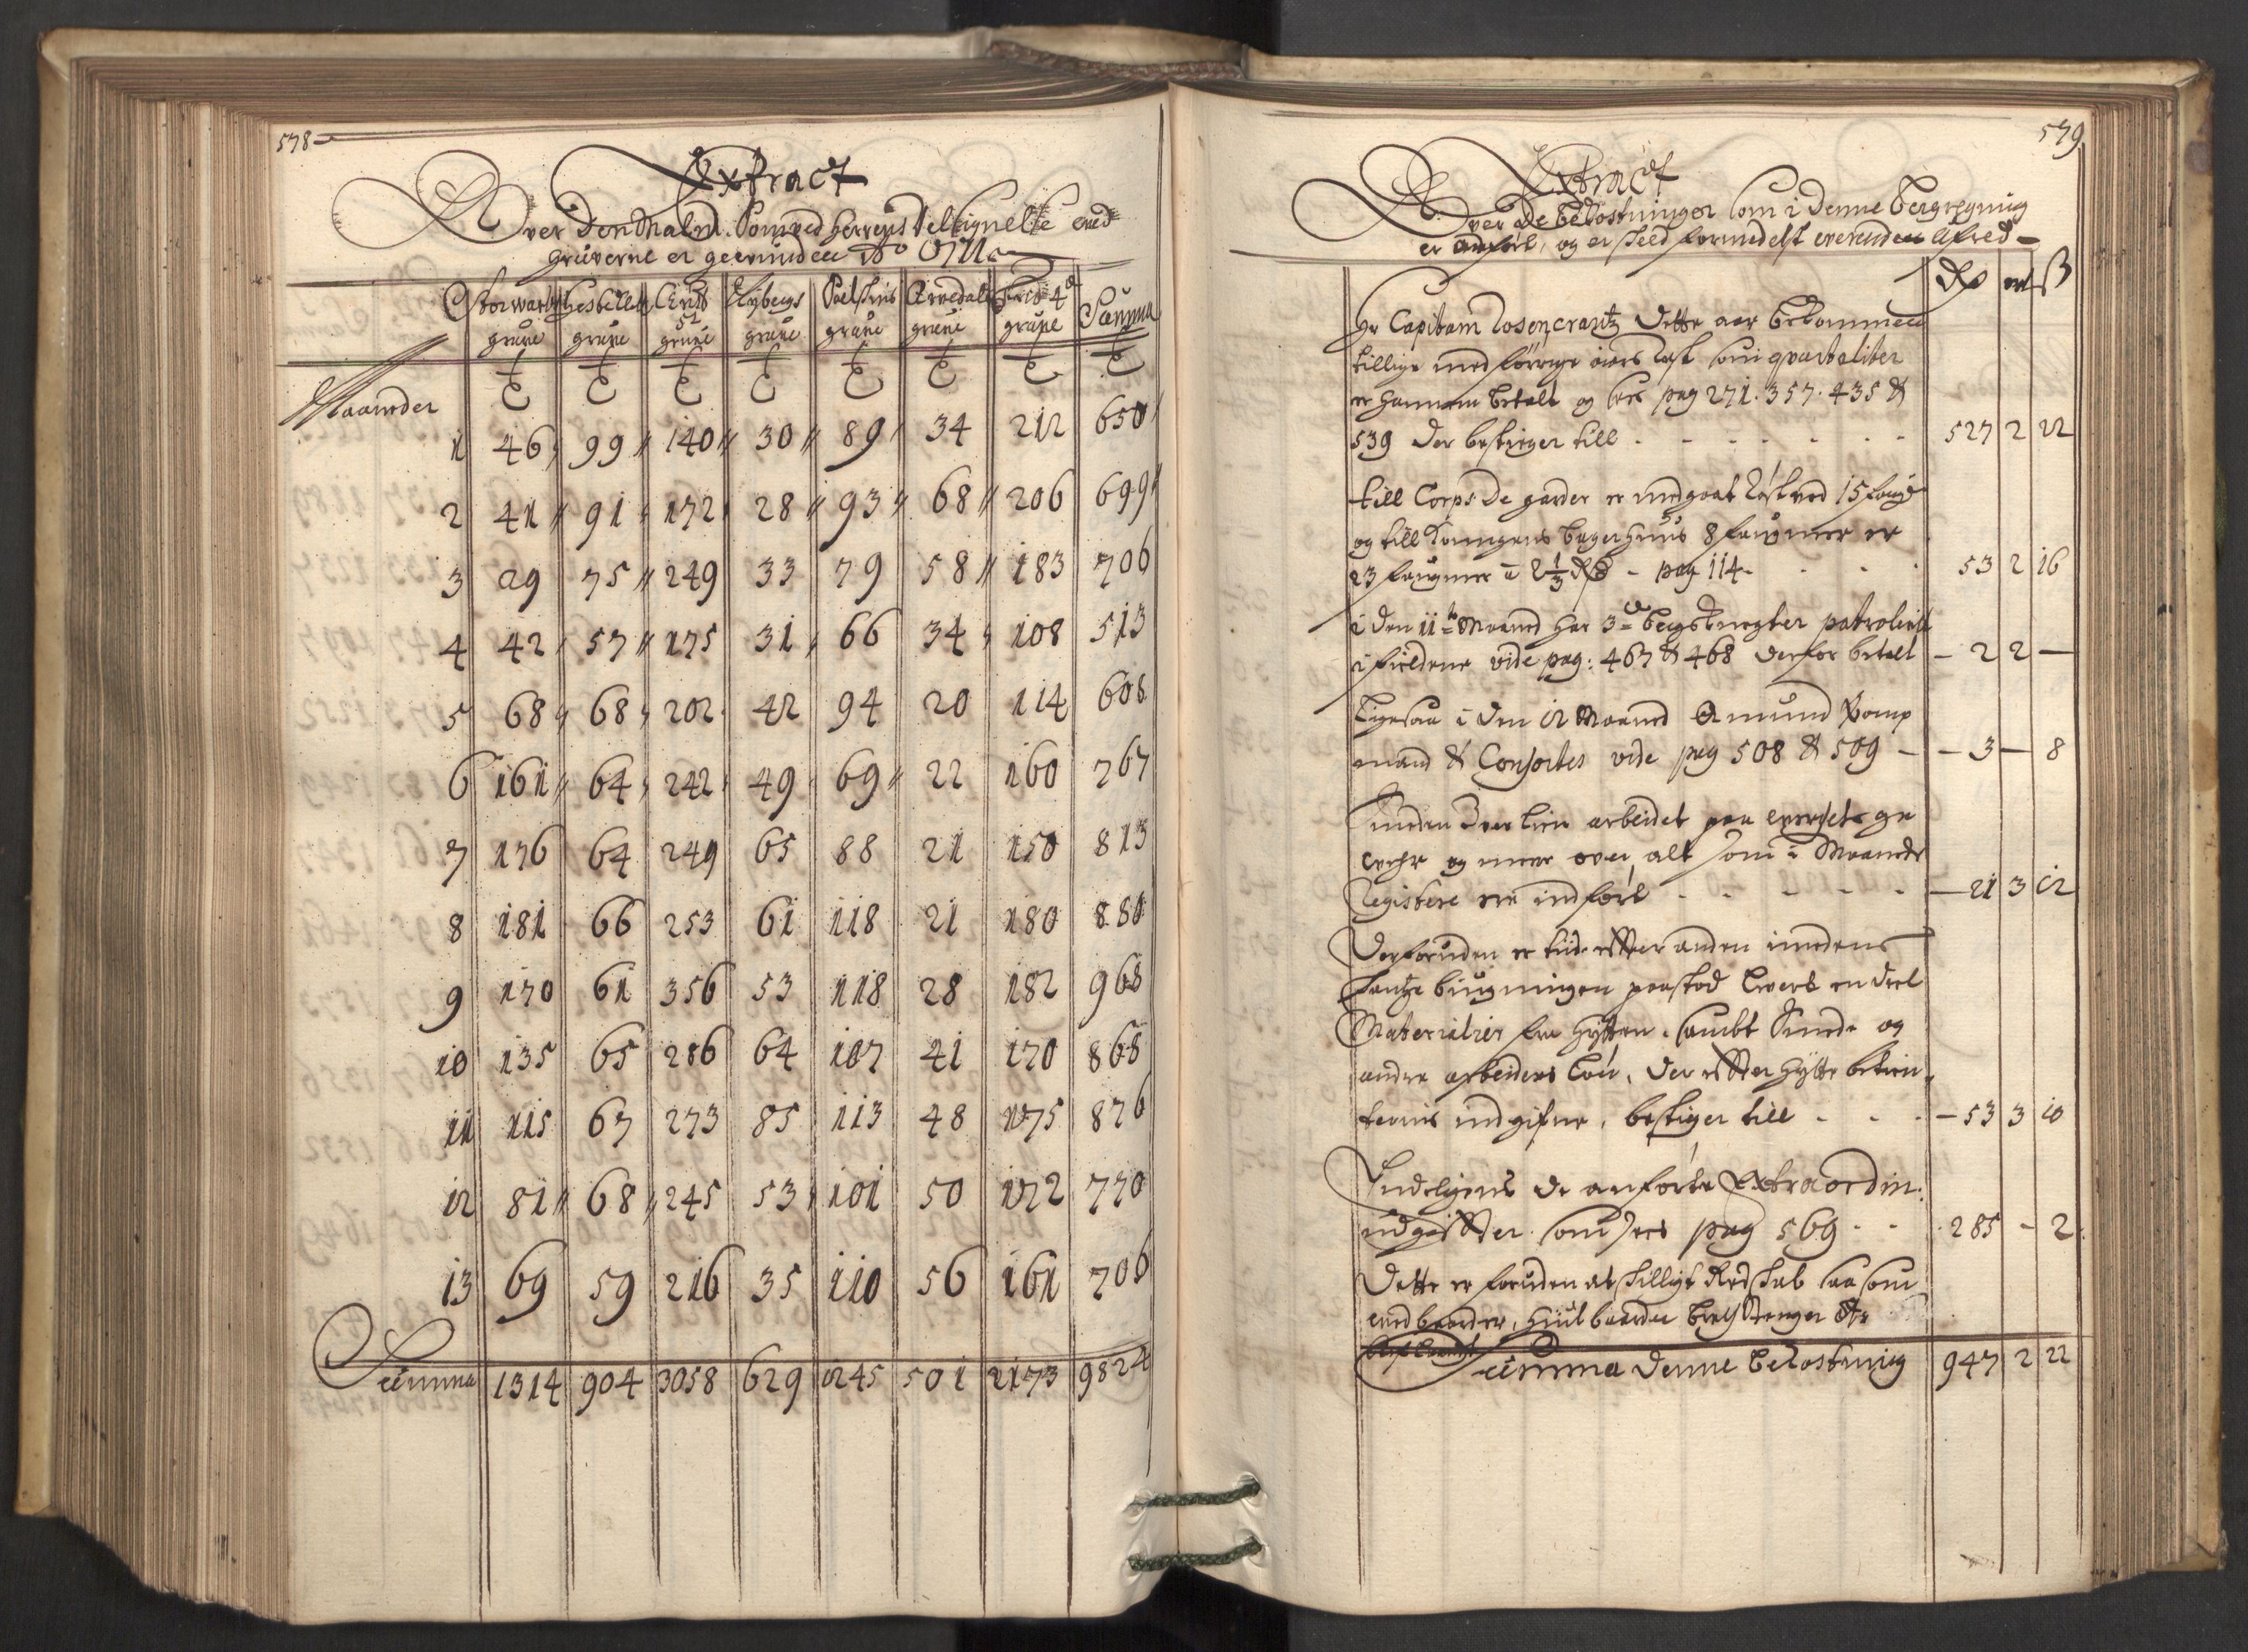 578
Extract
Over Den Malm. Som ved herrens Velsignelse ved
gruverne er gevunden Ao 1711
Storwarts gruve Hestkletten gruve Christ 5ti gruve Nybergs gruve Poel Skeis gruve Arvedals gruve Frid 4de gruve Summa
Maaneder
1 46 99 140 30 89 34 212 650
2 41 91 172 28 93 68 206 699
3 29 75 249 33 79 58 183 706
4 42 57 175 31 66 34 108 513
5 68 68 202 42 94 20 114 608
6 161 64 242 49 69 22 160 767
7 176 64 249 65 88 21 150 813
8 181 66 253 61 118 21 180 880
9 170 61 356 53 118 28 182 968
10 135 65 286 64 107 41 170 868
11 115 67 273 85 113 48 175 876
12 81 68 245 53 101 50 172 770
13 69 59 216 35 110 56 161 706
Summa 1314 904 3058 629 1245 501 2173 9824
579
Extract
Over De Bekostninger som i Denne Bergregning
er anført, og er skeed formedelst werende ufred
Rd ort ß
Hr Capitain Rosencrantz Dette aar bekommen
tillige med forrige aars Rest som qvartaliter
er hannem betalt og sees pag 271. 357. 435 &
539 Der bestiger till 527 2 22
till Corps De garder er medgaat Røstved 15 faufne
og till Kongens Bagerhuus 8 faufner er
23 faufner a 2 1/3 Rd pag 114 53 2 16
i Den 11te Maaned har 3de bergsknegter patroliert
i fieldene vide pag: 467 & 468 Derfor betalt 2 2 –
Ligesaa i den 12 Maaned Amund Komp
mand & Consortes vide pag 508 & 509 3 – 8
Smeden Iver Lien arbeidet paa werkets ge
wehr og meer over alt som i Maaneds
Registere ere indført 21 3 12
Derforuden er tiid efter anden imedens
Skantze bügningen paastod Levert en deel
Materialier fra Hytten, sambt Smeds og
andre arbeiders Løn, Der efter Hytte betien
ternis indgifne, bestiger till 53 3 10
Indeligens De anførte Extraordin:
udgifter som sees pag 569 285 – 2
Dette er foruden at skilligt Redskab saa som
ved baarder, Hiulbaarder Brechstenger &c
Summa Denne Bekostning 947 2 22